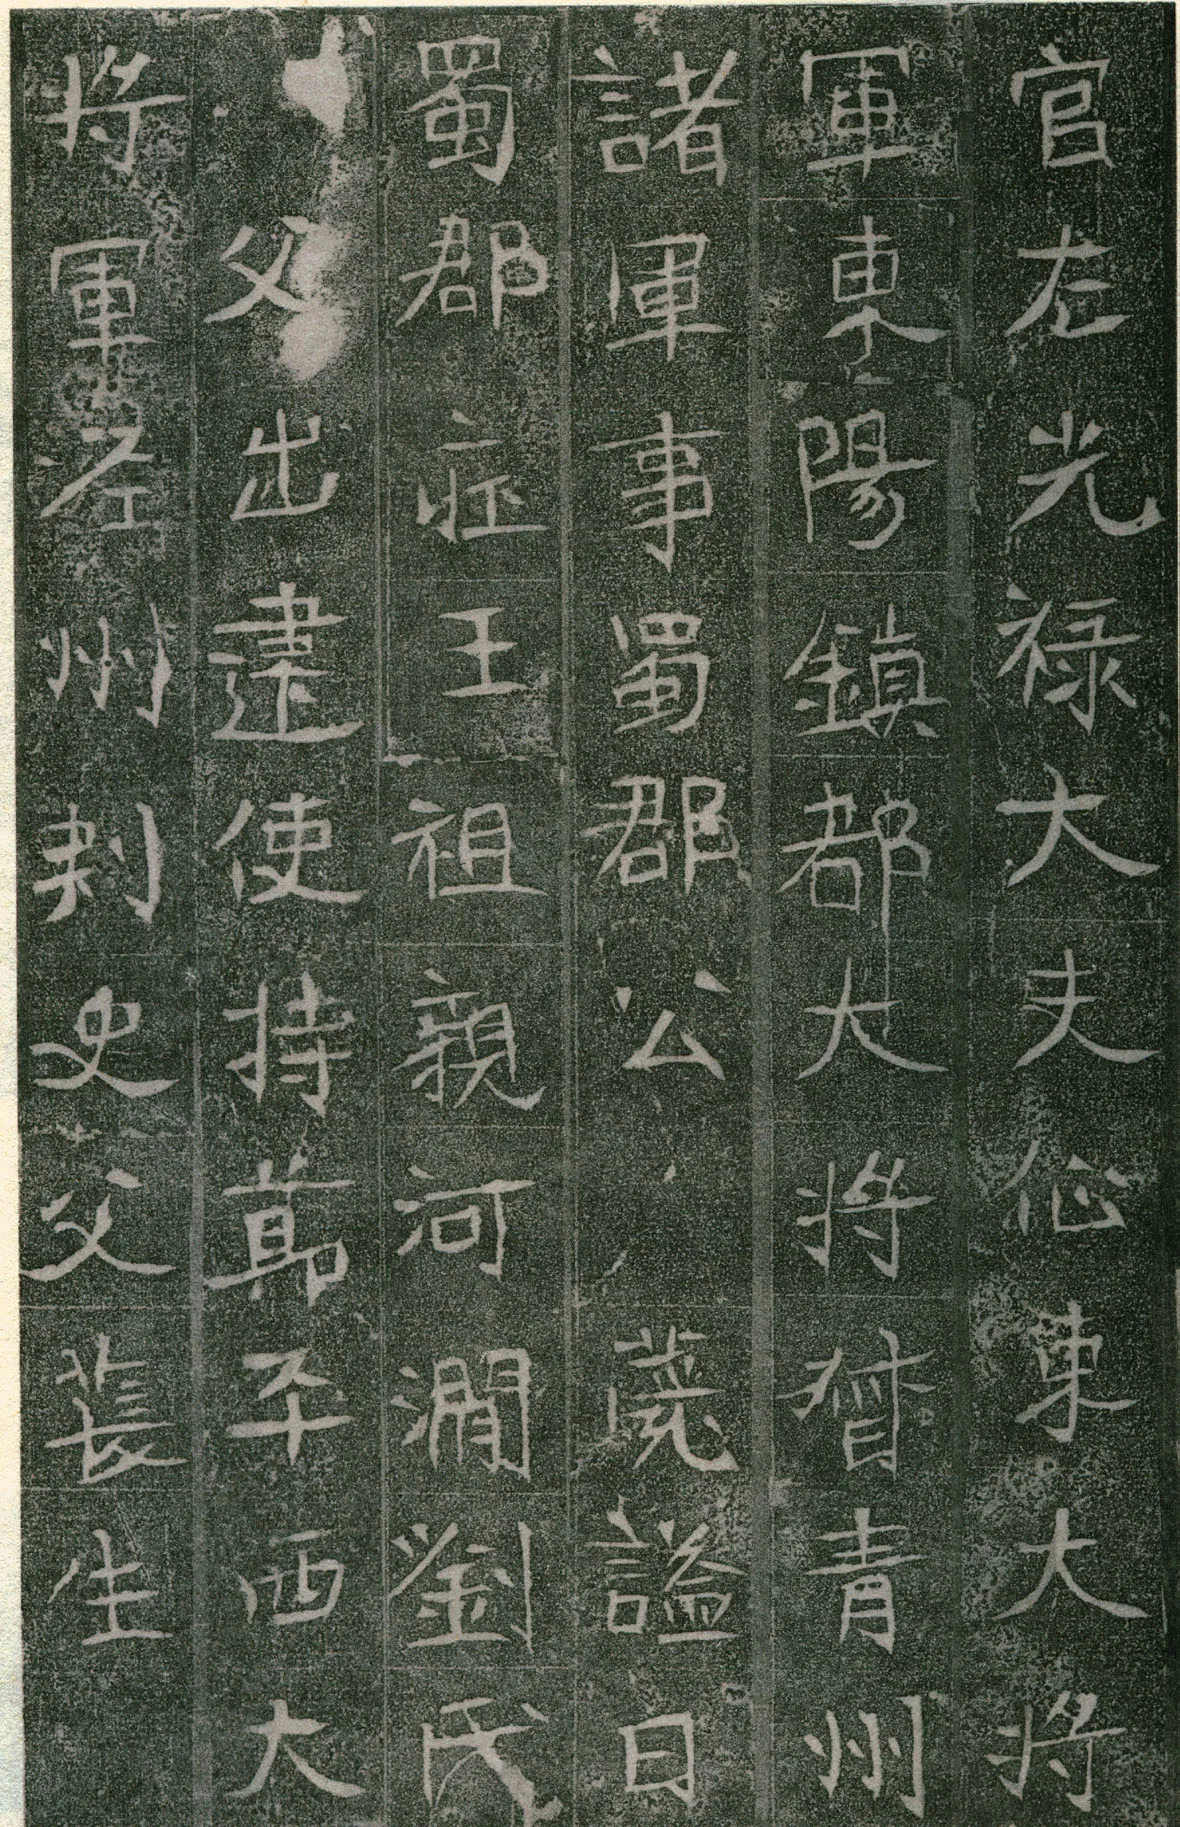 官左光禄大夫征東大將
軍東陽鎮都大將督青州
諸軍事蜀郡公薨謚曰
蜀郡莊王祖親河澗劉氏
父出建使持節平西大
將軍左州刺史父萇生